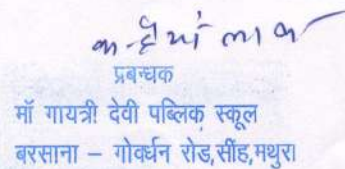 कन्हैया लाल
प्रबन्धक
माँ गायत्री देवी पब्लिक स्कूल
बरसाना – गोवर्धन रोड,सींह,मथुरा